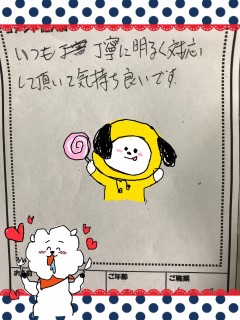 いつも丁寧に明るく対応
して頂いて気持ち良いです。
ご年齢
ご職業